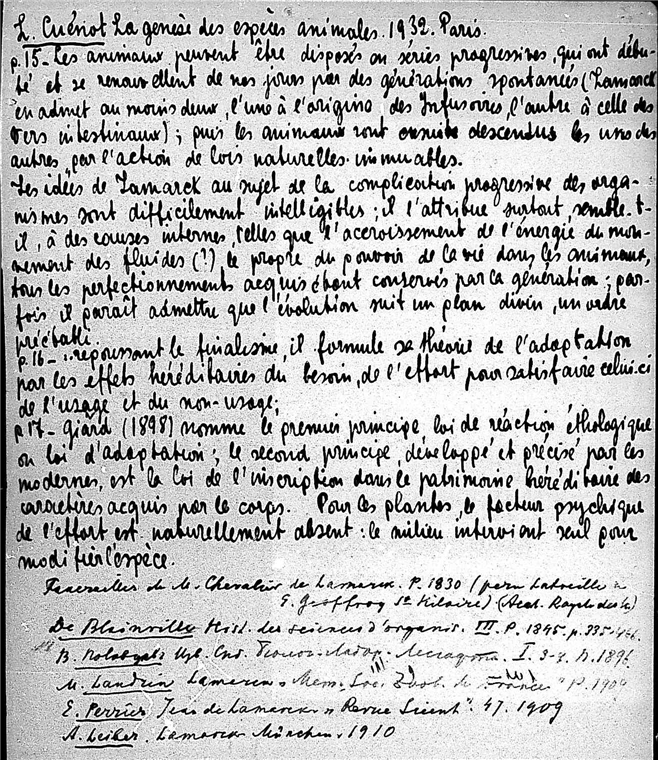 L. Cuénot La genèse des espèces animales. 1932. Paris.
p.15- Les animaux peuvent être disposés en séries progressives, qui ont débu-
té et se renouvellent de nos jours par des générations spontanées (Lamarck
en admet au moins deux, l'une à l'origine des Infusoires, l'autre à celle des
Vers intestinaux); puis les animaux sont ensuite descendus les uns des
autres, par l'action de lois naturelles immuables.
Les idées de Lamarck au sujet de la complication progressive des orga-
nismes sont difficilement intelligibles; il l'attribue surtout, semble-t-
il, à des causes internes, telles que l'accroissement de l'énergie du mou-
vement des fluides (?) le propre du pouvoir de la vie dans les animaux,
tous les perfectionnements acquis étant conservés par la génération; par-
fois il paraît admettre que l'évolution suit un plan divin, un ordre
préétabli.
p.16- .. repoussant le finalisme, il formule sa théorie de l'adaptation
par les effets héréditaires du besoin, de l'effort pour satisfaire celui-ci
de l'usage et du non-usage;
p.17- Giard (1898) nomme le premier principe loi de réaction éthologique
ou loi d'adaptation; le second principe, développé et précisé par les
modernes, est la loi de l'inscription dans le patrimoine héréditaire des
caractères acquis par le corps. Pour les plantes, le facteur psychique
de l'effort est naturellement absent: le milieu intervient seul pour
modifier l'espèce.
Funérailles de M. Chevalier de Lamarck. P. 1830 (
G. Geoffroy St Hilaire)
De Blainville Hist. des sciences d'organis. III. P. 1845. p. 335-
I. 1896
M. Landrin Lamarck Mem. Soc. Zool. de France" P. 1909
E. Perrier Jean de Lamarck "Revue Scient". 47. 1909
A. Leiber. Lamarck München, 1910